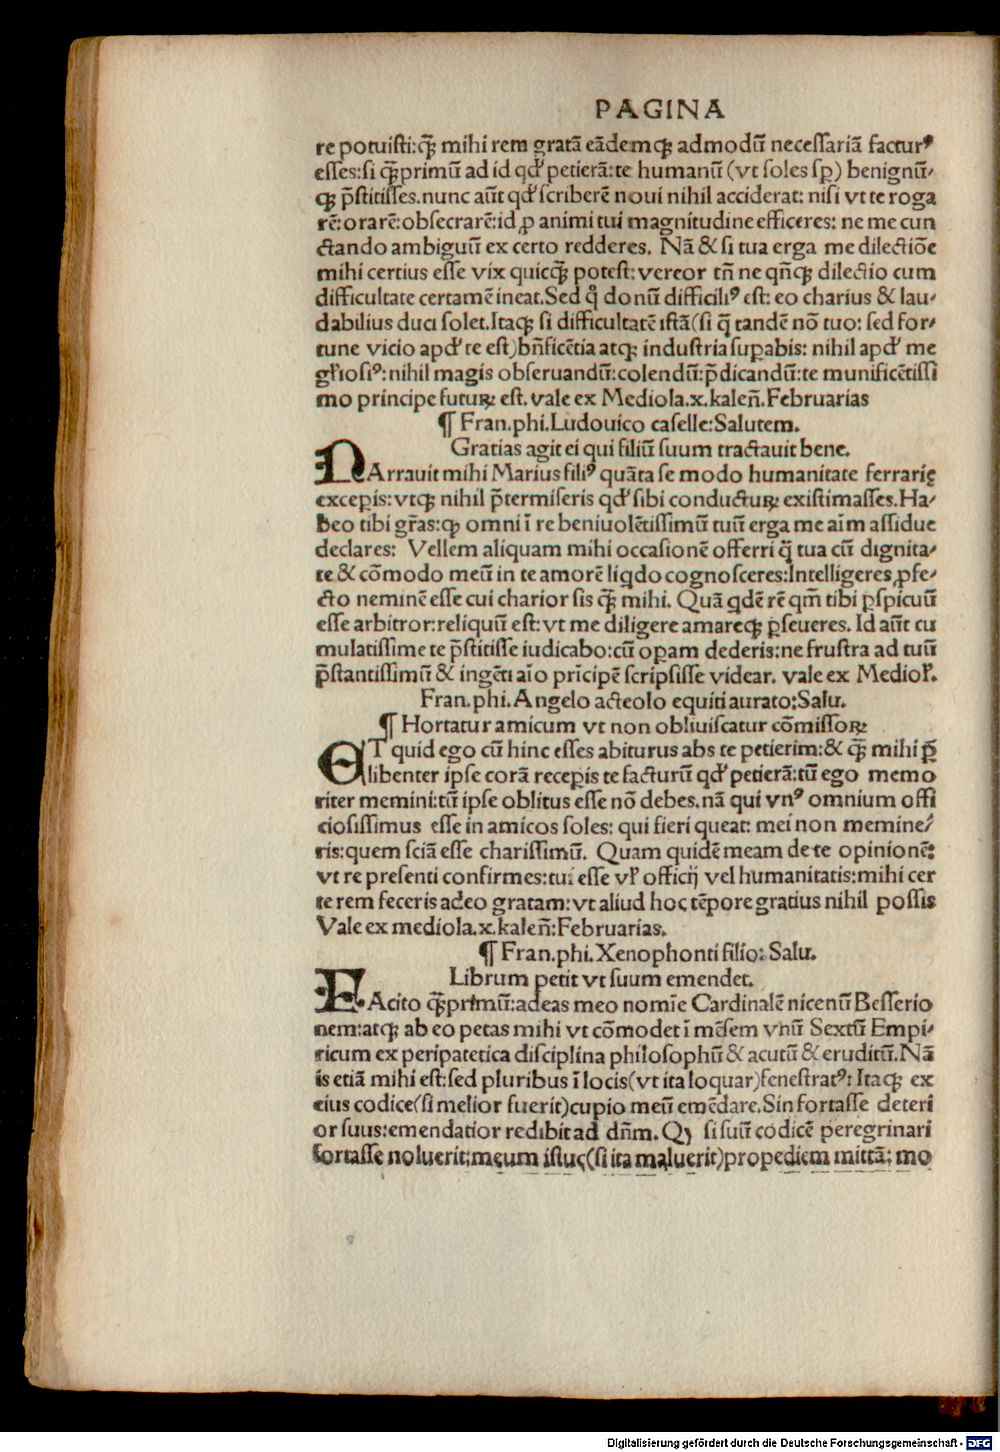 PAGINA
re potuisti:q̃ꝫ mihi rem gratã eãdemqꝫ admodũ necessariã facturꝰ
esses:si q̃ꝫprimũ ad id qđ petierã:te humanũ (vt soles sꝑ) benignũ-
qꝫ p̃stitisses.nunc aũt qđ scriberẽ noui nihil acciderat: nisi vt te roga
rẽ:orarẽ:obsecrarẽ:id ꝓ animi tui magnitudine efficeres: ne me cun
ctando ambiguũ ex certo redderes. Nã & si tua erga me dilectiõe
mihi certius esse vix quicq̃ꝫ potest: vereor tñ ne qñqꝫ dilectio cum
difficultate certamẽ ineat.Sed q̊ donũ difficiliꝰ est: eo charius & lau-
dabilius duci solet.Itaqꝫ si difficultatẽ istã(si q̃ tandẽ nõ tuo: sed for-
tune vicio apđ te est)bñficẽtia atqꝫ industria suꝑabis: nihil apđ me
gl̃iosiꝰ:nihil magis obseruandũ:colendũ:p̃dicandũ:te munificẽtissi
mo principe futuꝝ est. vale ex Mediola.x.kaleñ.Februarias
¶ Fran.phi.Ludouico caselle:Salutem.
Gratias agit ei qui filiũ suum tractauit bene.
NArrauit mihi Marius filiꝰ quãta se modo humanitate ferrarię
exceꝑis: vtqꝫ nihil p̃termiseris qđ sibi conductuꝝ existimasses.Ha-
beo tibi gr̃as:ꝙ omni ĩ re beniuolẽtissimũ tuũ erga me aĩm assidue
declares: Vellem aliquam mihi occasionẽ offerri q̃ tua cũ dignita-
te & cõmodo meũ in te amorẽ liqdo cognosceres:Intelligeres ꝓfe-
cto neminẽ esse cui charior sis q̃ꝫ mihi. Quã qdẽ rẽ qm̃ tibi ꝑspicuũ
esse arbitror:reliquũ est: vt me diligere amareqꝫ ꝑseueres. Id aũt cu
mulatissime te p̃stitisse iudicabo:cũ oꝑam dederis:ne frustra ad tuũ
p̃stantissimũ & ingẽti aĩo prĩcipẽ scripsisse videar. vale ex Mediol̃.
Fran.phi.Angelo acteolo equiti aurato:Salu.
¶ Hortatur amicum vt non obliuiscatur cõmissoꝝ
ET quid ego cũ hinc esses abiturus abs te petierim:& q̃ꝫ mihi ꝑ̃
libenter ipse corã receꝑis te facturũ qđ petierã:tũ ego memo
riter memini:tũ ipse oblitus esse nõ debes.nã qui vnꝰ omnium offi
ciosissimus esse in amicos soles: qui fieri queat: mei non memine-
ris:quem sciã esse charissimũ. Quam quidẽ meam de te opinionẽ:
vt re presenti confirmes:tui esse vl̃ officij vel humanitatis:mihi cer
te rem feceris adeo gratam: vt aliud hoc tẽpore gratius nihil possis
Vale ex mediola.x.kaleñ:Februarias.
¶ Fran.phi.Xenophonti filio: Salu.
Librum petit vt suum emendet.
FAcito q̃ꝫprimũ:adeas meo nomĩe Cardinalẽ nicenũ Besserio
nem:atqꝫ ab eo petas mihi vt cõmodet ĩ mẽsem vnũ Sextũ Empi-
ricum ex peripatetica disciplina philosophũ & acutũ & eruditũ.Nã
is etiã mihi est:sed pluribus ĩ locis(vt ita loquar)fenestratꝰ: Itaqꝫ ex
eius codice(si melior fuerit)cupio meũ emẽdare.Sin fortasse deteri
or suus:emendatior redibit ad dñm. Qꝫ si suũ codicẽ peregrinari
fortasse noluerit:meum istuc(si ita maluerit)propediem mittã: mo
Digitalisierung gefördert durch die Deutsche Forschungsgemeinschaft - DFG